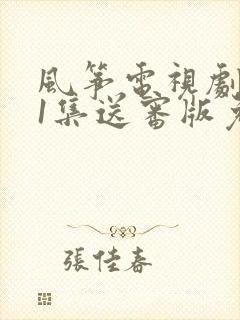 風箏電視劇
1集送審版免
張佳春